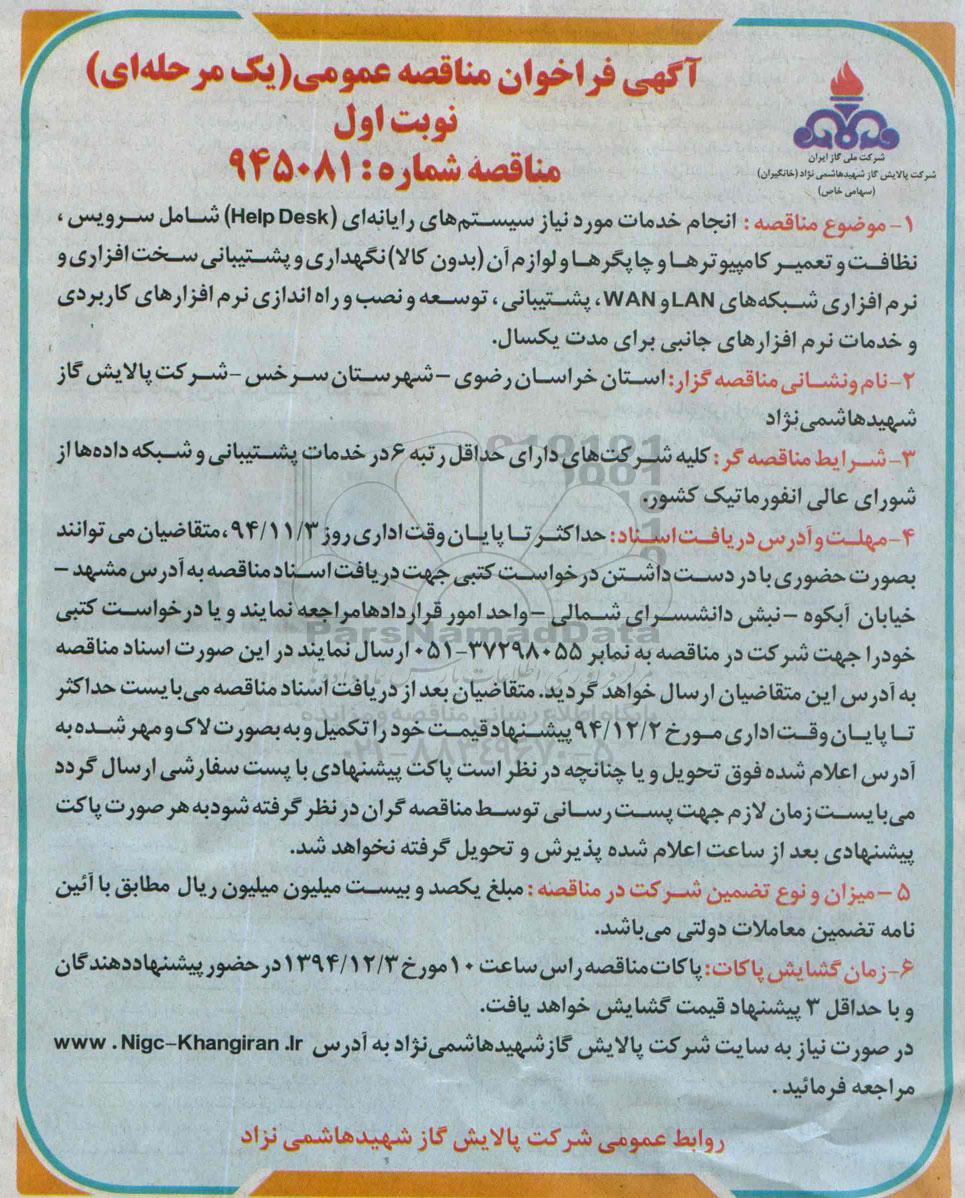 آگهی فراخوان مناقصه عمومی(یک مرحله‌ای)
نوبت اول
مناقصه شماره: ۹۴۵۰۸۱
شرکت ملی گاز ایران
شرکت پالایش گاز شهیدهاشمی نژاد (خانگیران)
(سهامی خاص)
۱- موضوع مناقصه: انجام خدمات مورد نیاز سیستم‌های رایانه‌ای (Help Desk) شامل سرویس،
نظافت و تعمیر کامپیوترها و چاپگرها و لوازم آن (بدون کالا) نگهداری و پشتیبانی سخت افزاری و
نرم افزاری شبکه‌های LAN و WAN، پشتیبانی، توسعه و نصب و راه اندازی نرم افزارهای کاربردی
و خدمات نرم افزارهای جانبی برای مدت یکسال.
۲-نام ونشانی مناقصه گزار: استان خراسان رضوی -شهرستان سرخس -شرکت پالایش گاز
شهیدهاشمی‌نژاد
۳- شرایط مناقصه گر: کلیه شرکت‌های دارای حداقل رتبه ۶ در خدمات پشتیبانی و شبکه داده‌ها از
شورای عالی انفورماتیک کشور.
۴-مهلت و آدرس دریافت اسناد: حداکثر تا پایان وقت اداری روز ۹۴/۱۱/۳، متقاضیان می توانند
بصورت حضوری با در دست داشتن درخواست کتبی جهت دریافت اسناد مناقصه به آدرس مشهد -
خیابان آبکوه - نبش دانشسرای شمالی - واحد امور قراردادها مراجعه نمایند و یا درخواست کتبی
خودرا جهت شرکت در مناقصه به نمابر ۳۷۲۹۸۰۵۵-۰۵۱ ارسال نمایند در این صورت اسناد مناقصه
به آدرس این متقاضیان ارسال خواهد گردید. متقاضیان بعد از دریافت اسناد مناقصه می‌بایست حداکثر
تا پایان وقت اداری مورخ ۹۴/۱۲/۲ پیشنهاد قیمت خود را تکمیل و به بصورت لاک و مهر شده به
آدرس اعلام شده فوق تحویل و یا چنانچه در نظر است پاکت پیشنهادی با پست سفارشی ارسال گردد
می‌بایست زمان لازم جهت پست رسانی توسط مناقصه گران در نظر گرفته شود به هر صورت پاکت
پیشنهادی بعد از ساعت اعلام شده پذیرش و تحویل گرفته نخواهد شد.
۵ - میزان و نوع تضمین شرکت در مناقصه: مبلغ یکصد و بیست میلیون میلیون ریال مطابق با آئین
نامه تضمین معاملات دولتی می‌باشد.
۶-زمان گشایش پاکات: پاکات مناقصه راس ساعت ۱۰ مورخ ۱۳۹۴/۱۲/۳ در حضور پیشنهاددهندگان
و با حداقل ۳ پیشنهاد قیمت گشایش خواهد یافت.
در صورت نیاز به سایت شرکت پالایش گاز شهیدهاشمی‌نژاد به آدرس www . Nigc-Khangiran .Ir
مراجعه فرمائید.
روابط عمومی شرکت پالایش گاز شهیدهاشمی نژاد
ParsNamadData
پایگاه اطلاع رسانی مناقصه و مزایده
۰۲۱-۸۸۳۴۹۶۷۰-۵